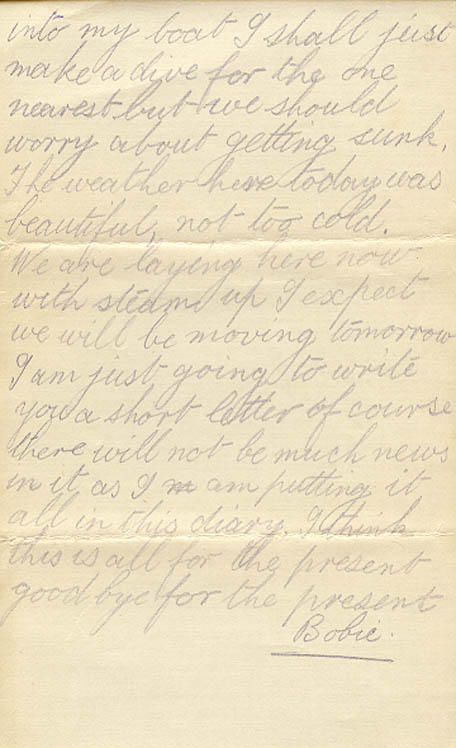 into my boat I shall just
make a dive for the one
nearest but we should
worry about getting sunk.
The weather here today was
beautiful, not too cold.
We are laying here now
with steam up I expect
we will be moving tomorrow
I am just going to write
you a short letter of course
there will not be much news
in it as I m am putting it
all in this diary. I think
this is all for the present
goodbye for the present
Bobie.